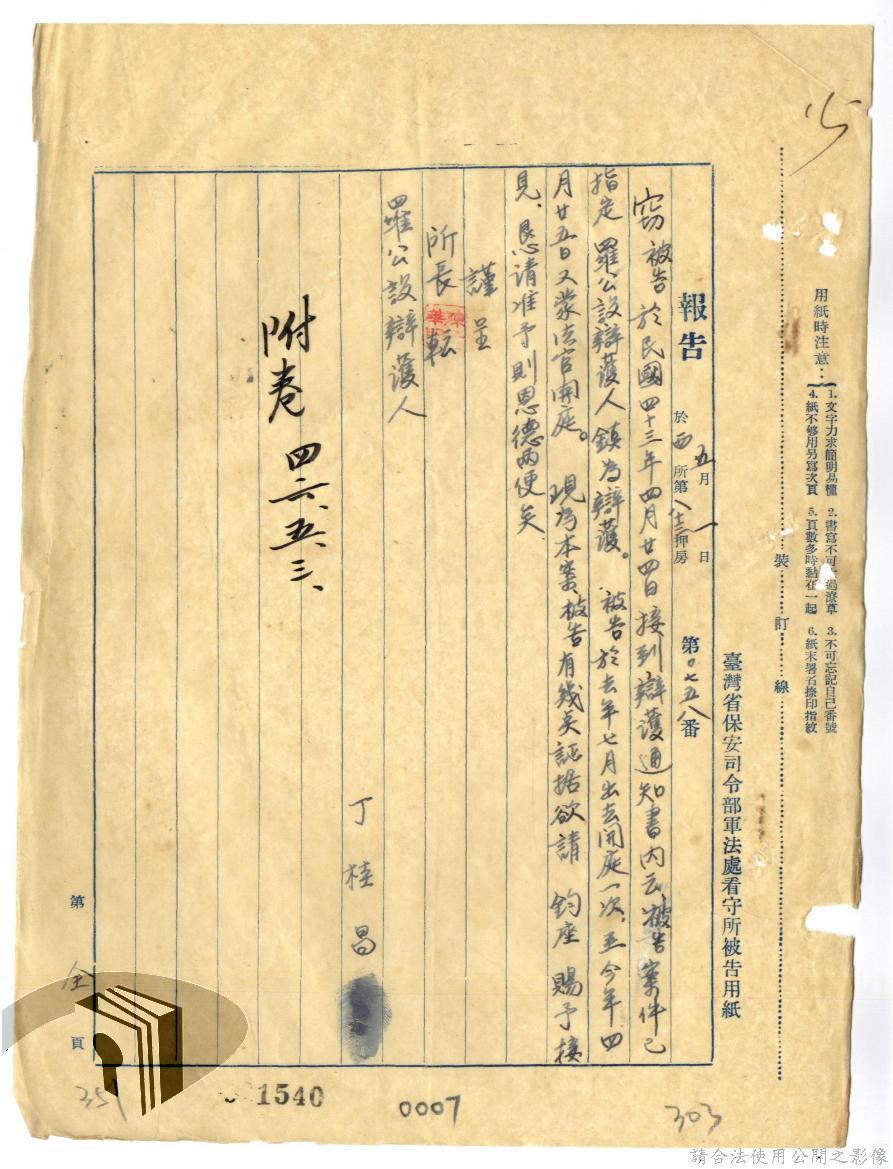 用紙時注意：
1. 文字力求簡明易懂
2. 書寫不可潦草
3. 不可忘記自己番號
4. 紙不够用另寫次頁
5. 頁數多時黏在一起
6. 紙末署名捺印指紋
裝訂線
臺灣省保安司令部軍法處看守所被告用紙
報告
五月一日
於西所第 押房
第〇七五八番
窃被告於民國四十三年四月廿四日接到辯護通知書內云，被告案件已
指定 羅公設辯護人鎮為辯護。被告於去年七月出去開庭一次，至今年四
月廿五日又蒙法官開庭。現為本案，被告有幾矣証据欲請 鈞座 賜予接
見，恳請准予則恩德兩便矣
謹呈
所長 転
羅公設辯護人
丁桂昌
附卷
第全頁
351
1540
0007
303
請合法使用公開之影像